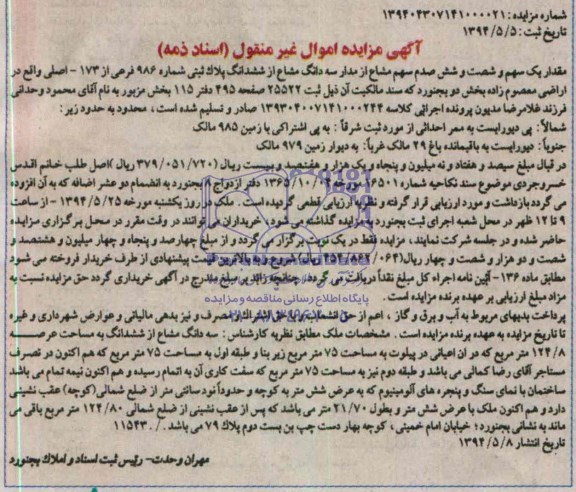 شماره مزایده: ۱۳۹۴۰۴۳۰۷۱۴۱۰۰۰۰۲۱
تاریخ ثبت: ۱۳۹۴/۵/۵
آگهی مزایده اموال غیر منقول (اسناد ذمه)
مقدار یک سهم و شصت و شش صدم سهم مشاع از مدار سه دانگ مشاع از ششدانگ پلاک ثبتی شماره ۹۸۶ فرعی از ۱۷۳ - اصلی واقع در
اراضی معصوم زاده بخش دو بجنورد که سند مالکیت آن ذیل ثبت ۲۵۵۲۲ صفحه ۴۹۵ دفتر ۱۱۵ بخش مزبور به نام آقای محمود وحدانی
فرزند غلامرضا مدیون پرونده اجرائی کلاسه ۱۳۹۳۰۴۰۰۷۱۴۱۰۰۰۲۴۴ صادر و تسلیم شده است، محدود به حدود زیر:
شمالاً: پی دیواریست به ممر احداثی از مورد ثبت شرقاً: به پی اشتراکی با زمین ۹۸۵ مالک
جنوباً: دیواریست به باقیمانده باغ ۲۹ مالک غرباً: به دیوار زمین ۹۷۹ مالک
در قبال مبلغ سیصد و هفتاد و نه میلیون و پنجاه و یک هزار و هفتصد و بیست ریال (۳۷۹/۰۵۱/۷۲۰ ریال) اصل طلب خانم اقدس
خسروجردی موضوع سند نکاحیه شماره ۱۶۵۰۱ مورخه ۱۳۶۵/۱۰/۰۲ دفتر ازدواج ۸ بجنورد به انضمام دو عشر اضافه که به آن افزوده
می گردد بازداشت و مورد ارزیابی قرار گرفته و نظریه ارزیابی قطعی گردیده است. ملک در روز یکشنبه مورخه ۱۳۹۴/۵/۲۵ - از ساعت
۹ تا ۱۲ ظهر در محل شعبه اجرای ثبت بجنورد به مزایده گذاشته می شود، خریداران می توانند در وقت مقرر در محل برگزاری مزایده
حاضر شده و در جلسه شرکت نمایند، مزایده فقط در یک نوبت برگزار می گردد و از مبلغ چهارصد و پنجاه و چهار میلیون و هشتصد و
شصت و دو هزار و شصت و چهار ریال (۴۵۴/۸۶۲/۰۶۴ ریال) شروع و به بالاترین قیمت پیشنهادی از طرف خریدار فروخته می شود
مطابق ماده ۱۳۶- آئین نامه اجراء کل مبلغ نقداً دریافت می گردد، چنانچه زائد بر مبلغ مندرج در آگهی خریداری گردد حق مزایده نسبت به
مزاد مبلغ ارزیابی بر عهده برنده مزایده است.
پایگاه اطلاع رسانی مناقصه و مزایده
پرداخت بدیهای مربوط به آب و برق و گاز، اعم از حق انشعاب و یا حق اشتراک و مصرف و نیز بدهی مالیاتی و عوارض شهرداری و غیره
تا تاریخ مزایده به عهده برنده مزایده است. مشخصات ملک مطابق نظریه کارشناس: سه دانگ مشاع از ششدانگ به مساحت عرصه
۱۲۴/۸ متر مربع که در آن اعیانی در پیلوت به مساحت ۷۵ متر مربع زیر بنا و طبقه اول به مساحت ۷۵ متر مربع که هم اکنون در تصرف
مستاجر آقای رضا کمالی می باشد و طبقه دوم نیز به مساحت ۷۵ متر مربع که سفت کاری آن به اتمام رسیده و هم اکنون نیمه تمام می باشد
ساختمان با نمای سنگ و پنجره های آلومینیوم که به عرض شش متر به کوچه و حدوداً نود سانتی متر از ضلع شمالی (کوچه) عقب نشینی
دارد و هم اکنون ملک با عرض شش متر و بطول ۲۱/۷۰ متر می باشد که پس از عقب نشینی از ضلع شمالی ۱۲۴/۸۰ متر مربع باقی می
ماند به نشانی بجنورد؛ خیابان امام خمینی، کوچه بهار دست چپ بن بست دوم پلاک ۷۹ می باشد./. ۱۱۵۴۳
تاریخ انتشار ۱۳۹۴/۵/۸
مهران وحدت- رئیس ثبت اسناد و املاک بجنورد